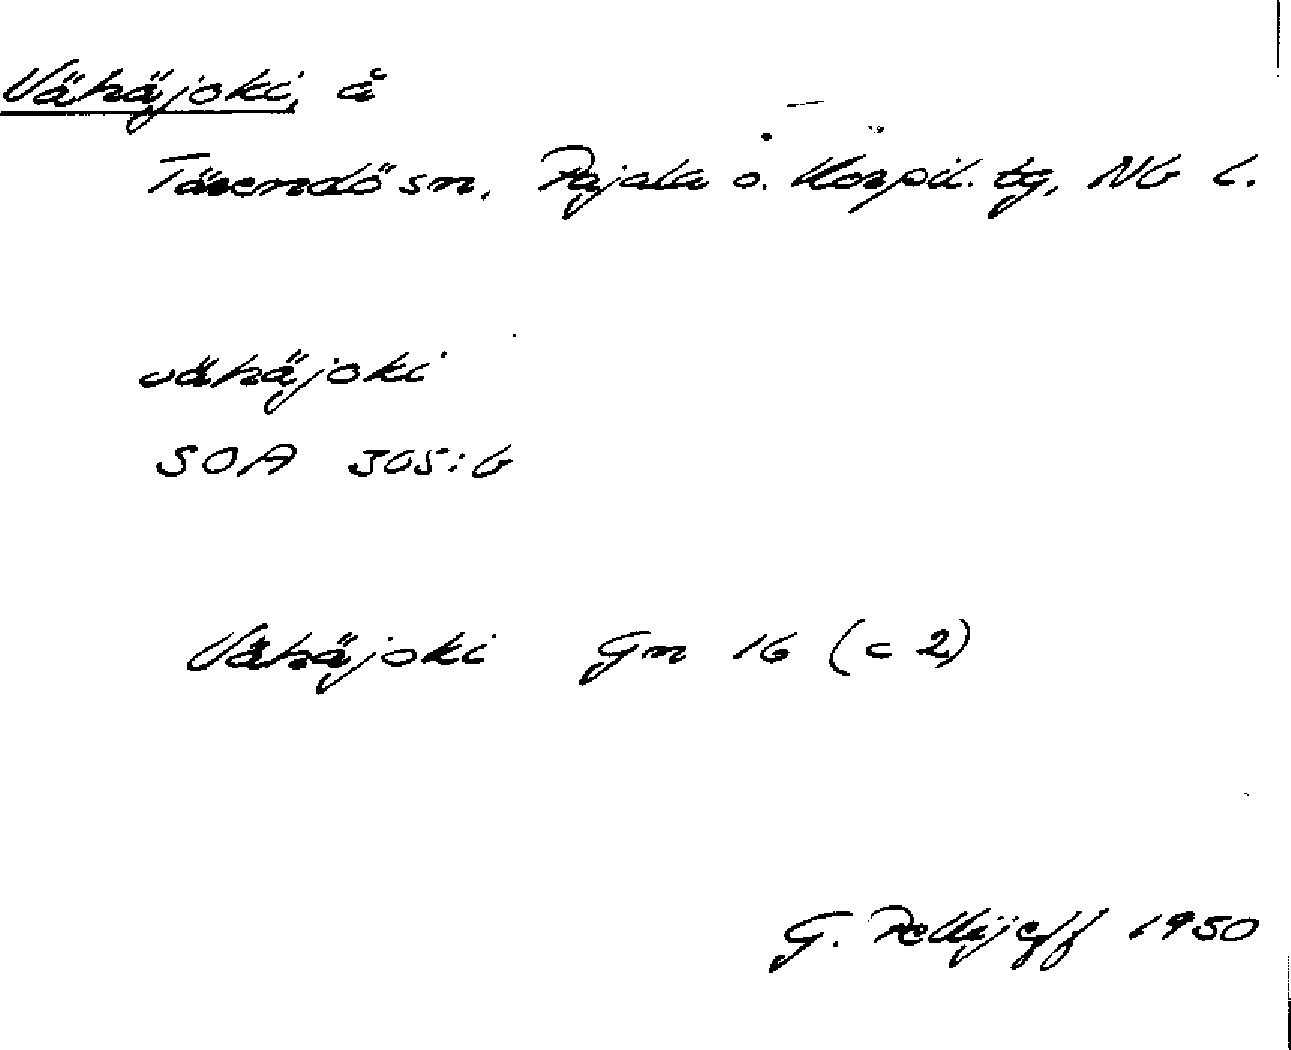 Vähäjoki, å
Tärendö sn. Pajala o. Korpil. tg, Nb l.
vähäjoki
SOA 305:6
Vähäjoki Gn 16 (c 2)
G. Pellijeff 1950